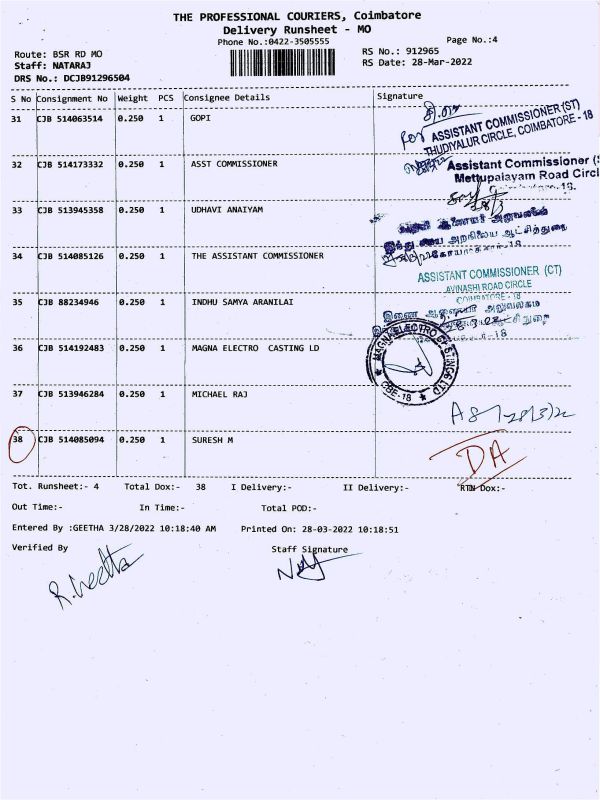 THE PROFESSIONAL COURIERS, Coimbatore
Delivery Runsheet - MO
Phone No.:0422-3505555
Page No.:4
Route: BSR RD MO
RS No.: 912965
Staff: NATARAJ
RS Date: 28-Mar-2022
DRS No.: DCJB91296504
S No Consignment No Weight PCS Consignee Details Signature
31 CJB 514063514 0.250 1 GOPI
for ASSISTANT COMMISSIONER (ST)
THUDIYALUR CIRCLE, COIMBATORE - 18
32 CJB 514173332 0.250 1 ASST COMMISSIONER
Assistant Commissioner (S
Mettupalayam Road Circl
18.
33 CJB 513945358 0.250 1 UDHAVI ANAIYAM
உதவி ஆணையர் அலுவலகம்
இந்து சமய அறநிலைய ஆட்சித்துறை
18
34 CJB 514085126 0.250 1 THE ASSISTANT COMMISSIONER
ASSISTANT COMMISSIONER (CT)
AVINASHI ROAD CIRCLE
COIMBATORE - 18
35 CJB 88234946 0.250 1 INDHU SAMYA ARANILAI
இணை ஆணையர் அலுவலகம்
18
36 CJB 514192483 0.250 1 MAGNA ELECTRO CASTING LD
MAGNA ELECTRO CASTINGS LTD
CBE-18
37 CJB 513946284 0.250 1 MICHAEL RAJ
28/3/22
38 CJB 514085094 0.250 1 SURESH M
DA
Tot. Runsheet:- 4 Total Dox:- 38 I Delivery:- II Delivery:- RTN Dox:-
Out Time:- In Time:- Total POD:-
Entered By :GEETHA 3/28/2022 10:18:40 AM Printed On: 28-03-2022 10:18:51
Verified By Staff Signature
R. Geetha